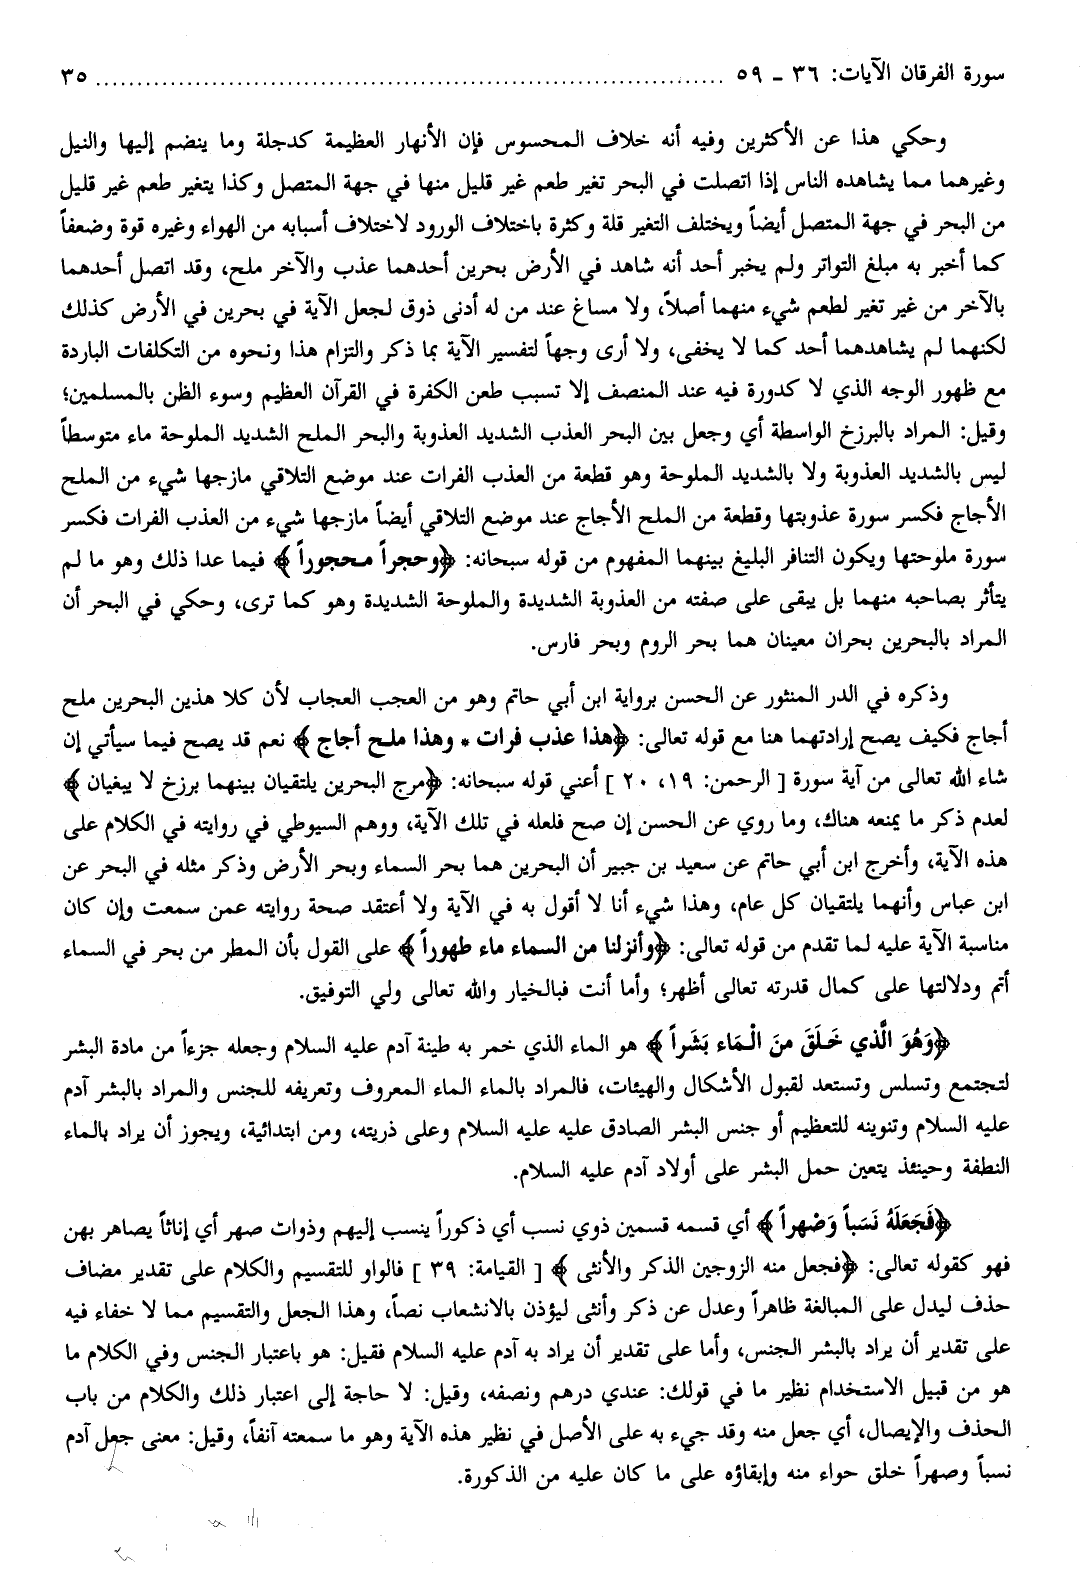 سورة الفرقان الآيات: ٣٦ - ٥٩ ........................................................................ ٣٥
وحكي هذا عن الأكثرين وفيه أنه خلاف المحسوس فإن الأنهار العظيمة كدجلة وما ينضم إليها والنيل
وغيرهما مما يشاهده الناس إذا اتصلت في البحر تغير طعم غير قليل منها في جهة المتصل وكذا يتغير طعم غير قليل
من البحر في جهة المتصل أيضاً ويختلف التغير قلة وكثرة باختلاف الورود لاختلاف أسبابه من الهواء وغيره قوة وضعفاً
كما أخبر به مبلغ التواتر ولم يخبر أحد أنه شاهد في الأرض بحرين أحدهما عذب والآخر ملح، وقد اتصل أحدهما
بالآخر من غير تغير لطعم شيء منهما أصلاً، ولا مساغ عند من له أدنى ذوق لجعل الآية في بحرين في الأرض كذلك
لكنهما لم يشاهدهما أحد كما لا يخفى، ولا أرى وجهاً لتفسير الآية بما ذكر والتزام هذا ونحوه من التكلفات الباردة
مع ظهور الوجه الذي لا كدورة فيه عند المنصف إلا تسبب طعن الكفرة في القرآن العظيم وسوء الظن بالمسلمين؛
وقيل: المراد بالبرزخ الواسطة أي وجعل بين البحر العذب الشديد العذوبة والبحر الملح الشديد الملوحة ماء متوسطاً
ليس بالشديد العذوبة ولا بالشديد الملوحة وهو قطعة من العذب الفرات عند موضع التلاقي مازجها شيء من الملح
الأجاج فكسر سورة عذوبتها وقطعة من الملح الأجاج عند موضع التلاقي أيضاً مازجها شيء من العذب الفرات فكسر
سورة ملوحتها ويكون التنافر البليغ بينهما المفهوم من قوله سبحانه: ﴿وحجراً محجوراً﴾ فيما عدا ذلك وهو ما لم
يتأثر بصاحبه منهما بل يبقى على صفته من العذوبة الشديدة والملوحة الشديدة وهو كما ترى، وحكي في البحر أن
المراد بالبحرين بحران معينان هما بحر الروم وبحر فارس.
وذكره في الدر المنثور عن الحسن برواية ابن أبي حاتم وهو من العجب العجاب لأن كلا هذين البحرين ملح
أجاج فكيف يصح إرادتهما هنا مع قوله تعالى: ﴿هذا عذب فرات * وهذا ملح أجاج﴾ نعم قد يصح فيما سيأتي إن
شاء الله تعالى من آية سورة [ الرحمن: ١٩، ٢٠ ] أعني قوله سبحانه: ﴿مرج البحرين يلتقيان بينهما برزخ لا يبغيان﴾
لعدم ذكر ما يمنعه هناك، وما روي عن الحسن إن صح فلعله في تلك الآية، ووهم السيوطي في روايته في الكلام على
هذه الآية، وأخرج ابن أبي حاتم عن سعيد بن جبير أن البحرين هما بحر السماء وبحر الأرض وذكر مثله في البحر عن
ابن عباس وأنهما يلتقيان كل عام، وهذا شيء أنا لا أقول به في الآية ولا أعتقد صحة روايته عمن سمعت وإن كان
مناسبة الآية عليه لما تقدم من قوله تعالى: ﴿وأنزلنا من السماء ماء طهوراً﴾ على القول بأن المطر من بحر في السماء
أتم ودلالتها على كمال قدرته تعالى أظهر؛ وأما أنت فبالخيار والله تعالى ولي التوفيق.
﴿وَهُوَ الَّذي خَلَقَ منَ الْمَاء بَشَراً﴾ هو الماء الذي خمر به طينة آدم عليه السلام وجعله جزءاً من مادة البشر
لتجتمع وتسلس وتستعد لقبول الأشكال والهيئات، فالمراد بالماء الماء المعروف وتعريفه للجنس والمراد بالبشر آدم
عليه السلام وتنوينه للتعظيم أو جنس البشر الصادق عليه عليه السلام وعلى ذريته، ومن ابتدائية، ويجوز أن يراد بالماء
النطفة وحينئذ يتعين حمل البشر على أولاد آدم عليه السلام.
﴿فَجَعَلَهُ نَسَباً وَصْهراً﴾ أي قسمه قسمين ذوي نسب أي ذكوراً ينسب إليهم وذوات صهر أي إناثاً يصاهر بهن
فهو كقوله تعالى: ﴿فجعل منه الزوجين الذكر والأنثى﴾ [ القيامة: ٣٩ ] فالواو للتقسيم والكلام على تقدير مضاف
حذف ليدل على المبالغة ظاهراً وعدل عن ذكر وأنثى ليؤذن بالانشعاب نصاً، وهذا الجعل والتقسيم مما لا خفاء فيه
على تقدير أن يراد بالبشر الجنس، وأما على تقدير أن يراد به آدم عليه السلام فقيل: هو باعتبار الجنس وفي الكلام ما
هو من قبيل الاستخدام نظير ما في قولك: عندي درهم ونصفه، وقيل: لا حاجة إلى اعتبار ذلك والكلام من باب
الحذف والإيصال، أي جعل منه وقد جيء به على الأصل في نظير هذه الآية وهو ما سمعته آنفاً، وقيل: معنى جعل آدم
نسباً وصهراً خلق حواء منه وإبقاؤه على ما كان عليه من الذكورة.